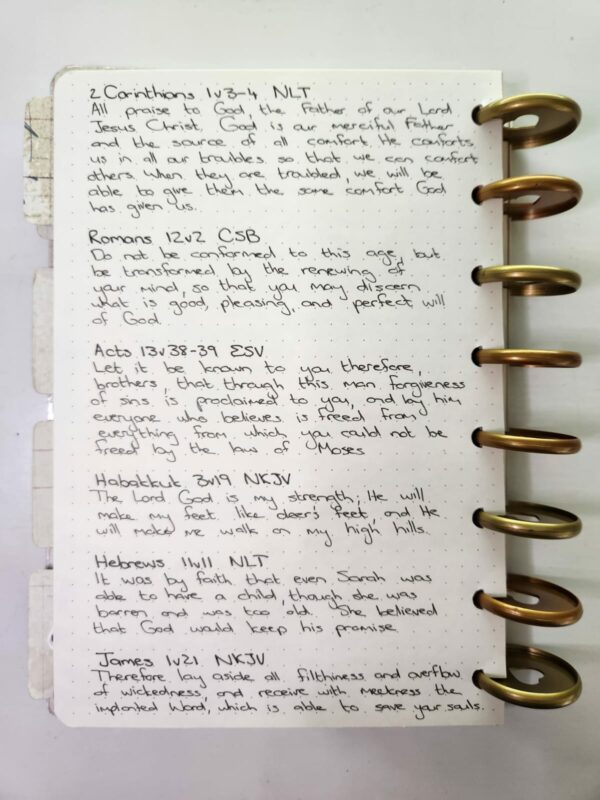 2 Corinthians 1v3-4 NLT
All praise to God, the Father of our Lord
Jesus Christ. God is our merciful Father
and the source of all comfort. He comforts
us in all our troubles so that we can comfort
others. When they are troubled, we will be
able to give them the same comfort God
has given us.
Romans 12v2 CSB
Do not be conformed to this age, but
be transformed by the renewing of
your mind, so that you may discern
what is good, pleasing, and perfect will
of God.
Acts 13v38-39 ESV
Let it be known to you therefore,
brothers, that through this man forgiveness
of sins is proclaimed to you, and by him
everyone who believes is freed from
everything from which you could not be
freed by the law of Moses
Habakkuk 3v19 NKJV
The Lord God is my strength; He will
make my feet like deer's feet, and He
will make me walk on my high hills.
Hebrews 11v11 NLT
It was by faith that even Sarah was
able to have a child, though she was
barren and was too old. She believed
that God would keep his promise.
James 1v21 NKJV
Therefore lay aside all filthiness and overflow
of wickedness, and receive with meekness the
implanted Word, which is able to save your souls.